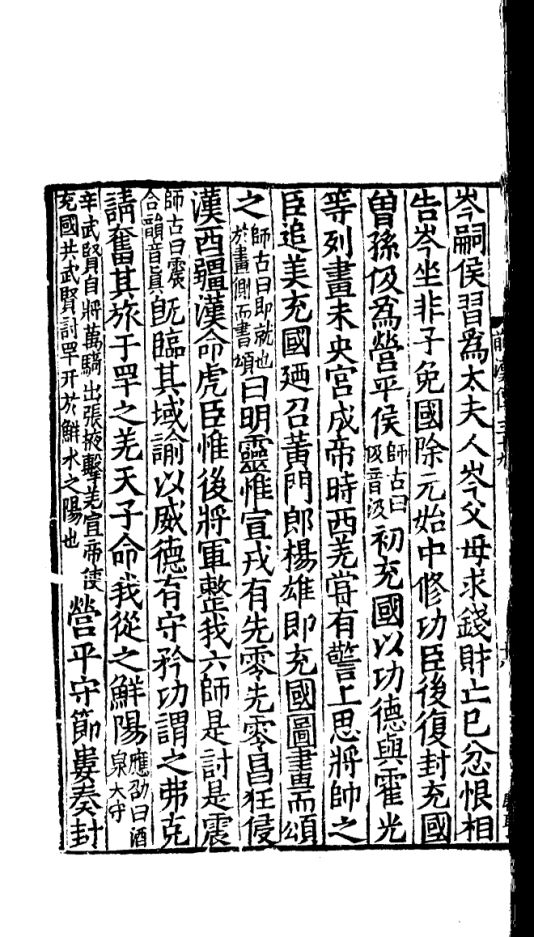 岑嗣侯習爲太夫人岑父母求錢財亡已忿恨相
告岑坐非子免國除元始中修功臣後復封充國
曾孫伋爲營平侯師古曰伋音汲初充國以功德與霍光
等列畫未央宮成帝時西羌甞有警上思將帥之
臣追美充國廼召黃門郎楊雄即充國圖畫而頌
之師古曰即就也於畫側而書頌曰明靈惟宣戎有先零先零昌狂侵
漢西疆漢命虎臣惟後將軍整我六師是討是震
師古曰震合韻音真旣臨其域諭以威德有守矜功謂之弗克
請奮其旅于罕之羌天子命我從之鮮陽應劭曰酒泉大守
辛武賢自將萬騎出張掖擊羌宣帝使充國共武賢討罕幵於鮮水之陽也營平守節婁奏封